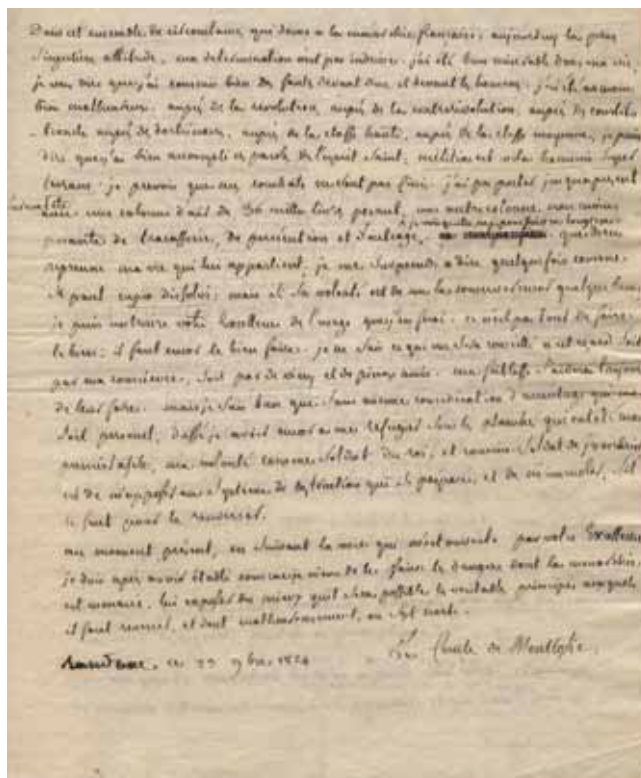 Dans cet ensemble de circonstances qui donne a la monarchie française, aujourdhuy la plus
singuliere attitude, ma determination n'est pas indecise. j'ai été bien miserable dans ma vie.
je veux dire que j'ai commis bien des fautes devant dieu et devant les hommes. j'ai été
malheureux, auprès de la revolution, auprès de la contrerévolution, auprès de
auprès de auprès de la classe haute, auprès de la classe moyenne, je puis
dire que j'ai bien accompli ces parole de l'esprit saint: militia est vita hominis super
terram. je prevois que ces combats ne sont pas finis. j'ai pu porter jusqu'a present
une colonne d'air de 30 mille livres pesant, une autre colonne non moins
pesante de tracasserie, de persécution et d'outrage,
que dieu
reprenne ma vie qui lui appartient, je me surprends a dire quelquefois comme
St paul cupio dissolvi; mais si sa volonté est de me la conserver encore quelque tems,
je puis instruire votre Excellence de l'usage que j'en ferai. ce n'est pas tout de faire
le bien: il faut encore le bien faire. je ne sais ce qui me sera conseillé a cet egard soit
par ma conscience, soit par de vieux et de pieux amis. ma faiblesse s'aidera toujours
de leur force. mais je sais bien que sans aucune consideration d'avantage qui me
soit personnel, dussé je avoir encore a me refugier sous la planche qui a été mon
premier asile, ma volonté comme soldat du roi, et comme soldat de
est de m'opposer au systeme de destruction qui se prepare, et de s'il
le faut pour le renverser.
au moment présent, en suivant la voie qui m'est ouverte par votre Excellence
je dois après avoir établi comme je viens de le faire le dangers dont la monarchie
est menacée, lui exposer du mieux qu'il sera possible le veritable principe auquel
il faut revenir, et dont malheureusement, on s'est ecarté.
Randanne, ce 23 9bre 1824
Le Comte de Montlosier.